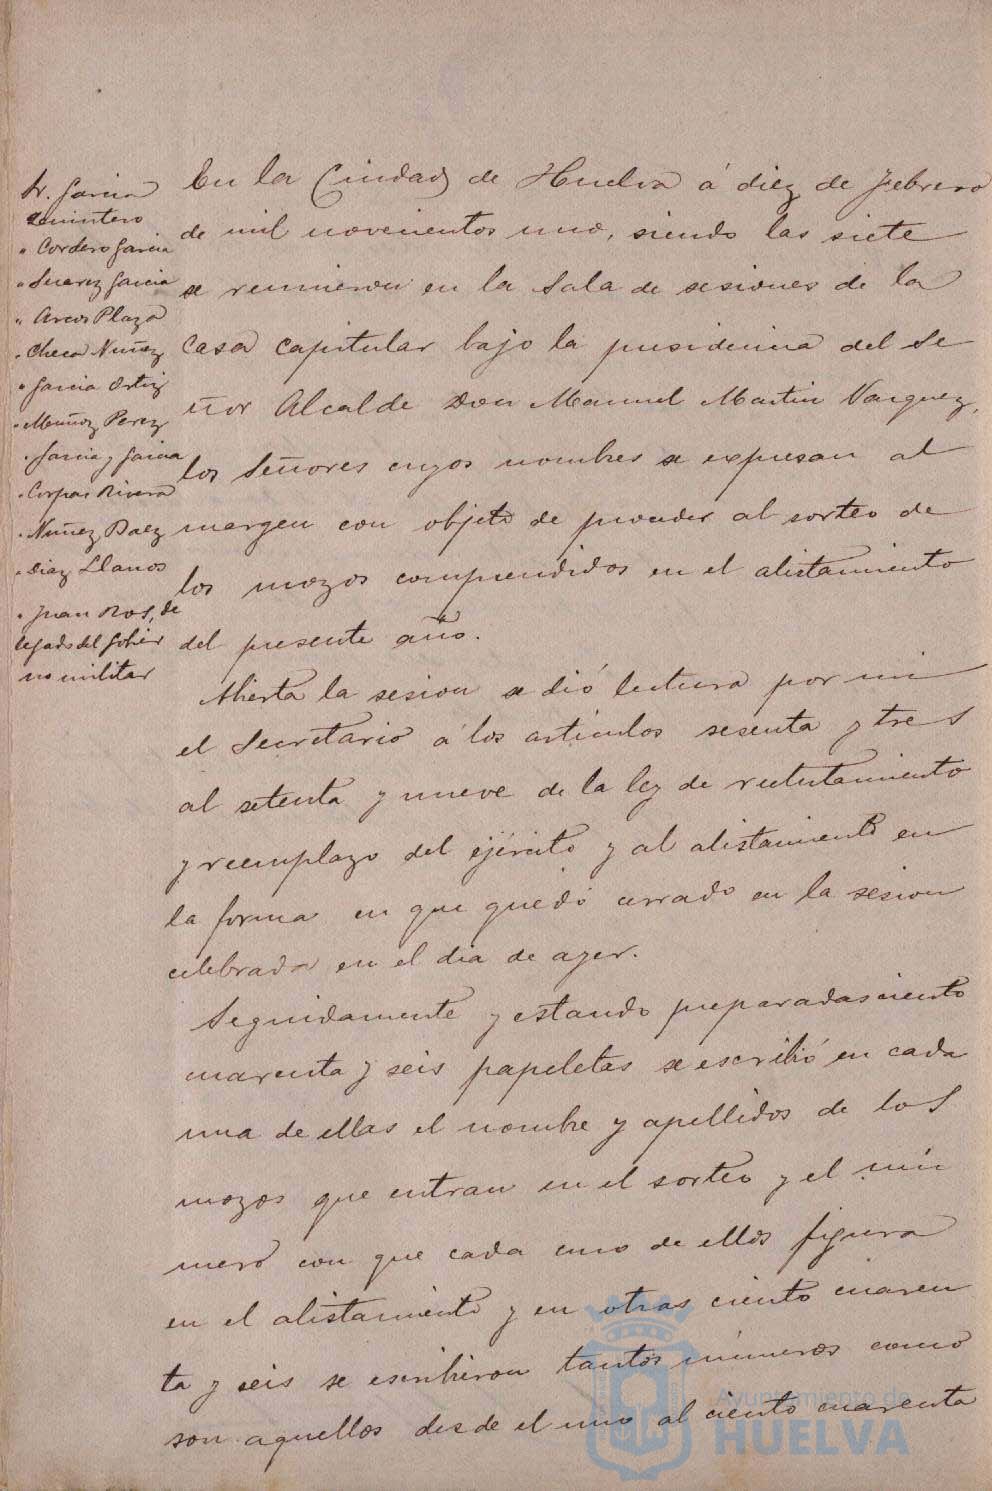 Sr. Garcia
Seminterio
" Cordero Garcia
" Suarez Garcia
" Arcos Plaza
" Checa Nuñez
" Garcia Ortiz
" Muñoz Perez
" Garcia y Garcia
" Corpas Rivera
" Nuñez Baez
" Diaz Llanos
" Juan Ros, de
legado del Gobier
no militar
En la Ciudad de Huelva á diez de Febrero
de mil novecientos uno, siendo las siete
se reunieron en la Sala de sesiones de la
casa capitular bajo la presidencia del Se
ñor Alcalde Don Manuel Martin Vazquez,
los Señores cuyos nombres se expresan al
margen con objeto de proceder al sorteo de
los mozos comprendidos en el alistamiento
del presente año.
Abierta la sesion se dió lectura por mi
el Secretario á los articulos sesenta y tres
al setenta y nueve de la ley de reclutamiento
y reemplazo del ejército y al alistamiento en
la forma en que quedó cerrado en la sesion
celebrada en el dia de ayer.
Seguidamente y estando preparadas ciento
cuarenta y seis papeletas se escribió en cada
una de ellas el nombre y apellidos de los
mozos que entran en el sorteo y el nú
mero con que cada uno de ellos figura
en el alistamiento y en otras ciento cuaren
ta y seis se escribieron tantos números como
son aquellos desde el uno al ciento cuarenta
Ayuntamiento de
HUELVA